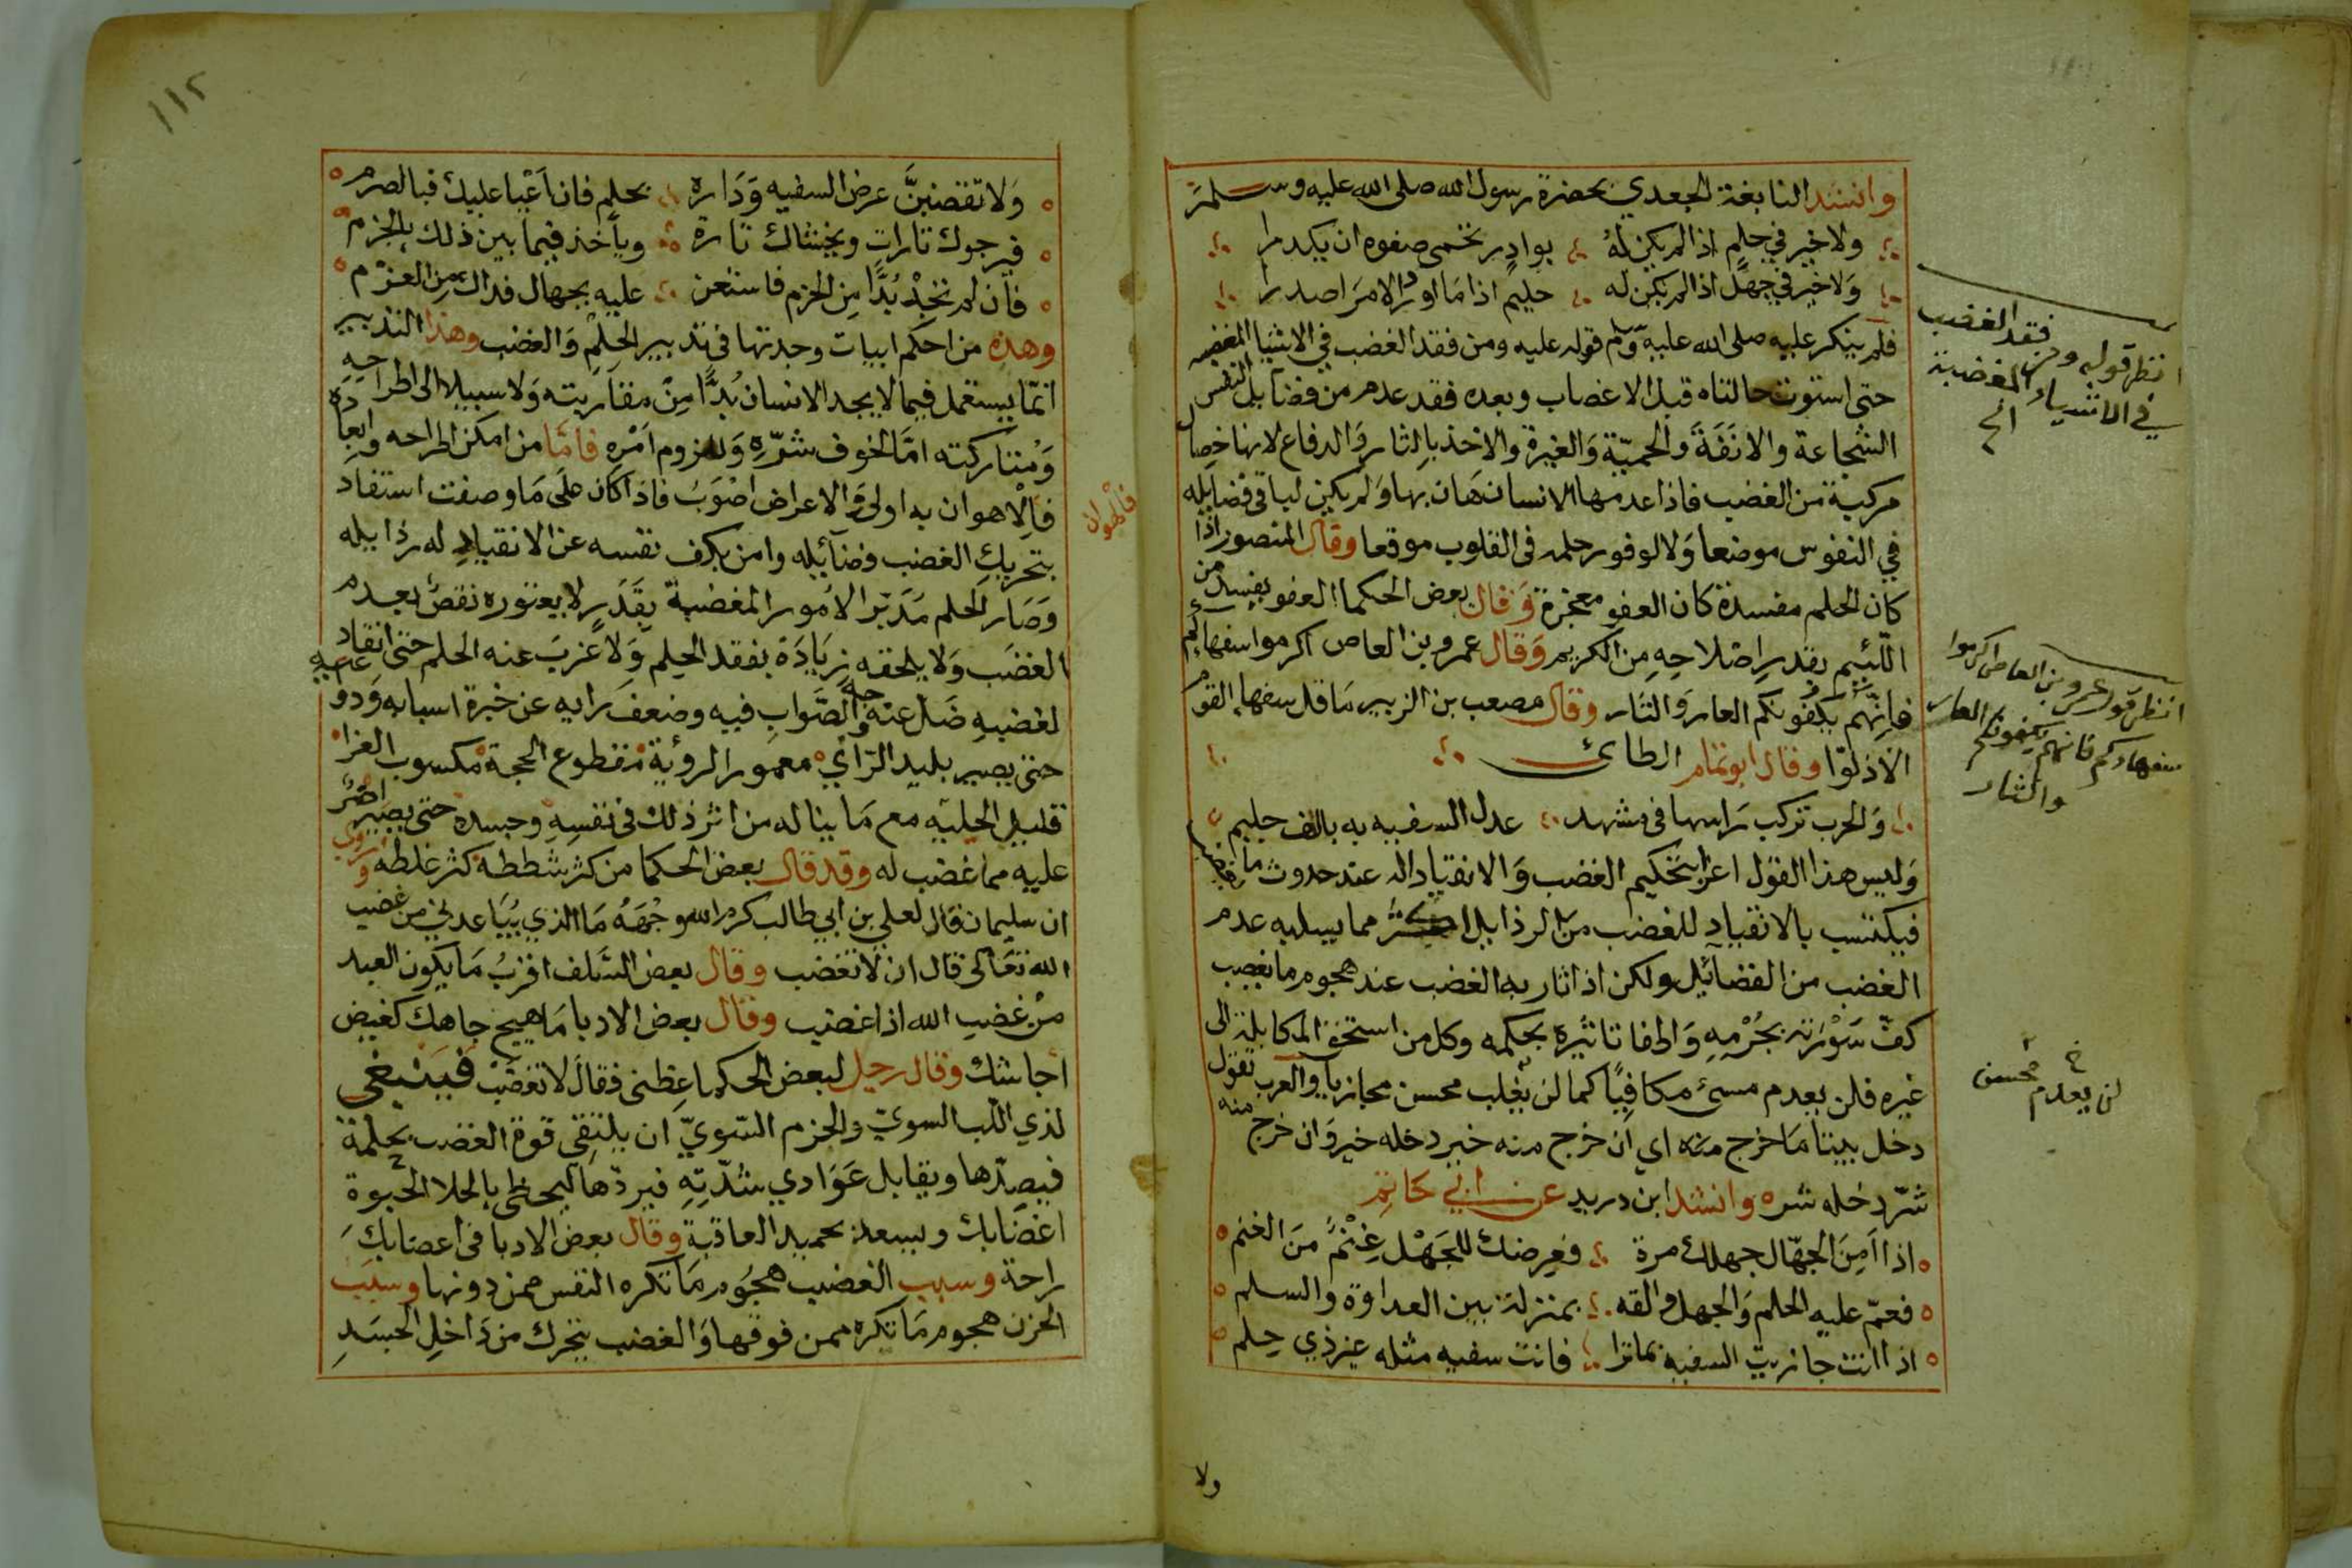 وانشد النابغة الجعدي بحضرة رسول الله صلى الله عليه وسلم
ولا خير في حلم اذا لم يكن له بوادر تحمى صفوه ان يكدرا
ولا خير في جهل اذا لم يكن له حليم اذا ما اورد الامر اصدرا
فلم ينكر عليه صلى الله عليه وسلم قوله عليه ومن فقد الغضب في الاشيا المغضبه
حتى استوت حالتاه قبل الاغضاب وبعده فقد عدم من فضايل النفس
الشجاعة والانفة والحمية والغيرة والاخذ بالثار والدفاع لانها خصال
مركبة من الغضب فاذا عدمها الانسان هان بها ولم يكن لباقي فضايله
في النفوس موضعا ولا لوفور حلمه في القلوب موقعا وقال المنصور اذا
كان الحلم مفسدة كان العفو معجزة وقال بعض الحكما العفو يفسد من
اللئيم بقدر اصلاحه من الكريم وقال عمرو بن العاص اكرموا سفهائكم
فانهم يكفونكم العار والنار وقال مصعب بن الزبير ما قل سفها القوم
الا ذلوا وقال ابو تمام الطائي
والحرب تركب راسها في مشهد عدل السفيه به بالف حليم
وليس هذا القول اغرا بتحكيم الغضب والانقياد اله عند حدوث ما يغضب
فيكتسب بالانقياد للغضب من الرذايل اكثر مما يسلبه عدم
الغضب من الفضائل ولكن اذا ثار به الغضب عند هجوم ما يغضب
كف سورته بحزمه واطفا تاثيره بحكمه وكل من استحق المكابلة الى
غيره فلن يعدم مسئ مكافيا كما لن يغلب محسن مجازيا والعرب تقول
دخل بيتا ما خرج منه اي ان خرج منه خير دخله خير وان خرج منه
شر دخله شره وانشد ابن دريد عن ابي حاتم
اذا امن الجهال جهلك مرة فعرضك للجهل غنم من الغنم
فعم عليه الحلم والجهل والقه بمنزلة بين العداوة والسلم
اذا انت جازيت السفيه بماترا فانت سفيه مثله غير ذي حلم
ولا
انظر قوله ومن فقد الغضب
في الاشياء المغضبة
الخ
انظر قول عمرو بن العاص اكرموا
سفهاءكم فانهم يكفونكم العار
والنار
خ
لن يعدم محسن
١١٢
ولا تغضبن عرض السفيه وداره بحلم فان اعيا عليك فبالصرم
فيرجوك تارات ويخشاك تارة وياخذ فيما بين ذلك بالحزم
فان لم تجد بدا من الحزم فاستعن عليه بجهال فذاك من العزم
وهذه من احكم ابيات وجدتها في تدبير الحلم والغضب وهذا التدبير
انما يستعمل فيما لا يجد الانسان بدا من مقاربته ولا سبيلا الى اطراحه
ومتاركته اما لخوف شره ولزوم امره فاما من امكن اطراحه وابعاده
فالاهوان به اولى والاعراض اصوب فاذا كان على ما وصفت استفاد
فالهوان
بتحريك الغضب فضآئله وامن بكف نفسه عن الانقياد له رذايله
وصار الحلم مدبرا لامور المغضبة بقدر لا يعتوره نقص بعدم
الغضب ولا يلحقه زيادة بفقد الحلم ولا عزب عنه الحلم حتى انقاد
لغضبه ضل عنه وجه الصواب فيه وضعف رايه عن خبرة اسبابه ودواعيه
حتى يصير بليد الراي معمور الروية منقطوع الحجة مكسوب العزا
قليل الحليه مع ما يناله من اثر ذلك في نفسه وجسده حتى يصير اضر
عليه مما غضب له وقد قال بعض الحكما من كثر شططه كثر غلطه وروي
ان سليمان قال لعلي بن ابي طالب كرم الله وجهه ما الذي يباعدني من غضب
الله تعالى قال ان لا تغضب وقال بعض السلف اقرب ما يكون العبد
من غضب الله اذا غضب وقال بعض الادبا ما هيج جاهك كغيض
اجاشك وقال رجل لبعض الحكما عظني فقال لا تغضب فينبغي
لذي اللب السوي والحزم السوي ان يلتقي قوة الغضب بحلمة
فيصدها ويقابل عوادي شدته فيردها ليحظى بالحلا الحبوة
اغضابك ويسعد بحميد العاقبة وقال بعض الادبا في اعضابك
راحة وسبب الغضب هجوم ما تكره النفس ممن دونها وسبب
الحزن هجوم ما تكره ممن فوقها والغضب يتحرك من داخل الجسد